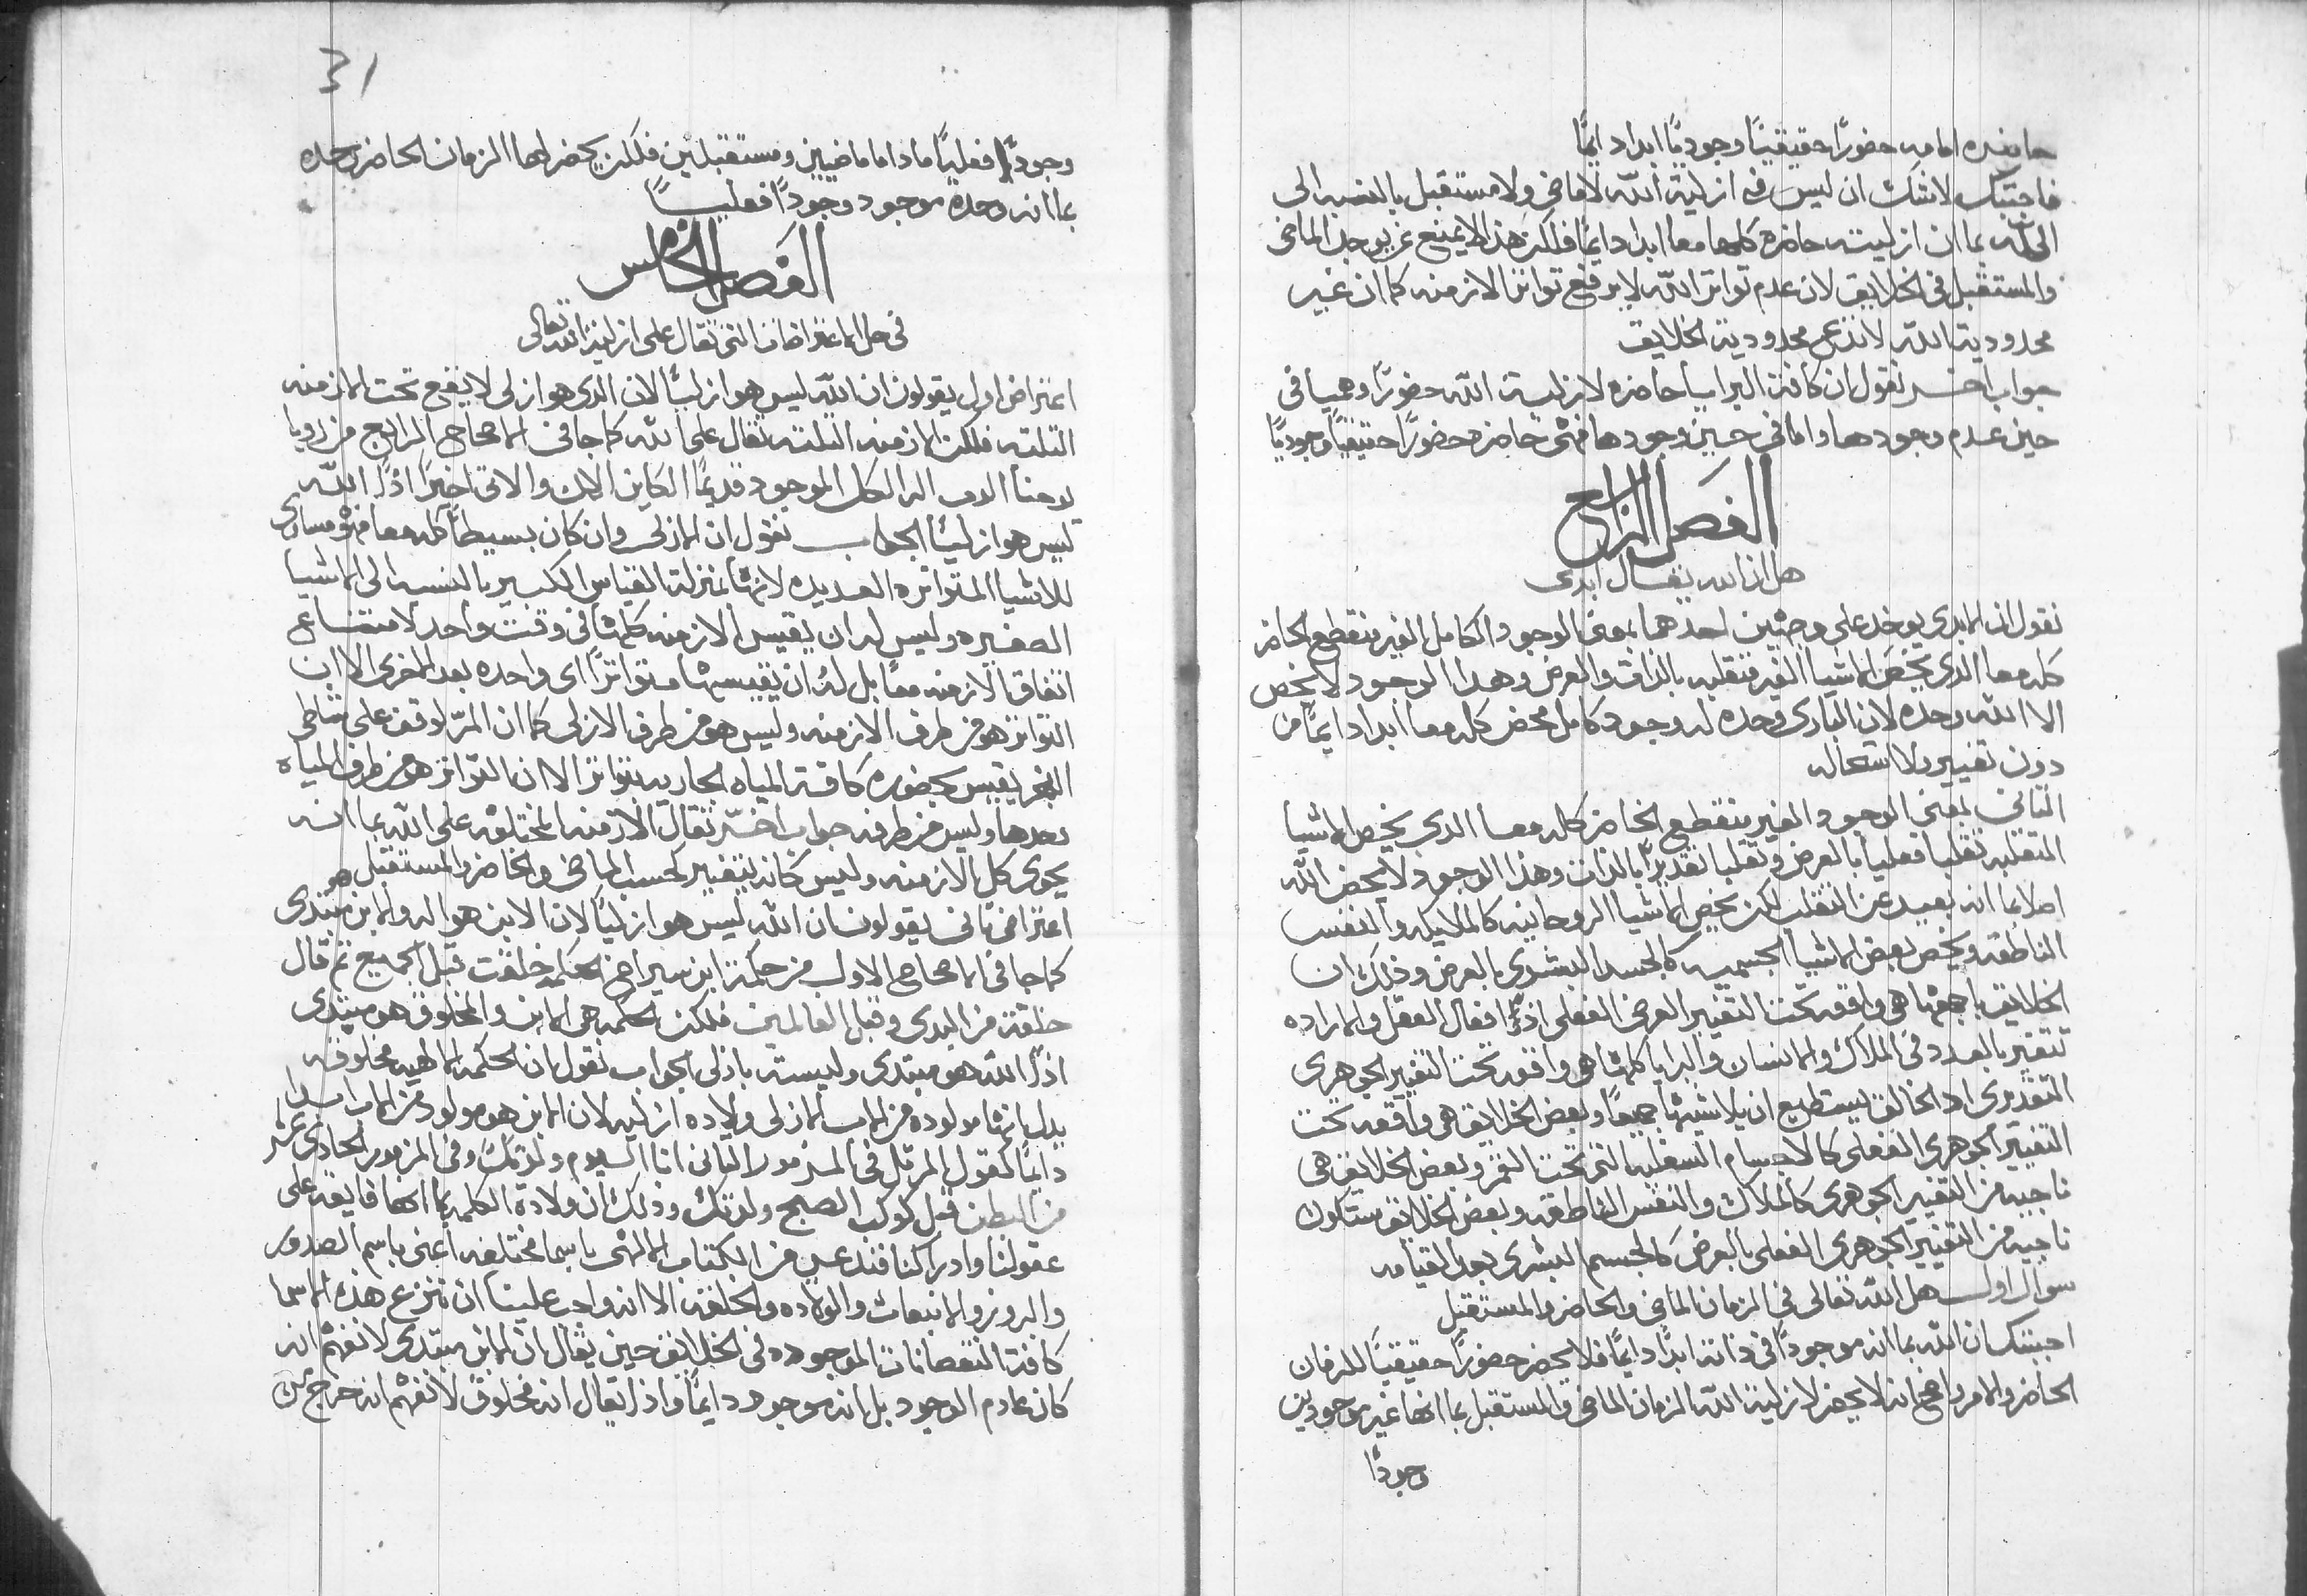 حاضره امامه حضورًا حقيقيًا وجوديًا ابدا دايمًا
فاجبتك لاشك ان ليس في ازلية الله لا ماضي ولا مستقبل بالنسبه الى
الله بما ان ازليته حاضره كلها معا ابدا دايمًا فلكن هذا لا يمنع عن يوجد الماضي
والمستقبل في الخلايق لان عدم تواتر الله لا يرفع تواتر الازمنه كما ان غير
محدودية الله لا تنزع محدودية الخلايق
جواب اخر نقول ان كافة البرايا حاضره لازلية الله حضورًا وهميا في
حين عدم وجودها واما في حين وجودها فهي حاضره حضورًا حقيقيًا وجوديًا
الفصل الرابع
هل ان الله يقال ابدى
نقول ان الابدى يوخد على وجهين احدهما بمعنى الوجود الكامل الغير منقطع الحاضر
كله معا الدى يخص الاشيا الغير منقلبه بالذات والعرض وهدا الوجود لا يخص
الا الله وحده لان البارى وحده له وجود كامل محض كله معا ابدا دايمًا من
دون تغيير ولا استحاله
الثاني بمعنى الوجود الغير منقطع الحاضر كله معا الدى يخص الاشيا
المتقلبه تقلبا فعليا بالعرض وتقلبا تقديريًا بالذات وهذا الوجود لا يخص الله
اصلا بما انه بعيد عن التقلب لكن يخص الاشيا الروحانيه كالملايكه والنفس
الناطقه ويخص بعض الاشيا الجسميه كالجسد البشرى بالعرض وذلك ان
الخلايق باجمعها هي واقعه تحت التغيير العرضى الفعلى اذ افعال العقل والاراده
تتغير بالعدد في الملاك والانسان والبرايا كلها هي واقعه تحت التغيير الجوهرى
التقديرى اد الخالق يستطيع ان يلاشيها جميعًا وبعض الخلايق هي واقعه تحت
التغيير الجوهرى الفعلى كالاجسام السفليه التى تحت القمر وبعض الخلايق هي
ناجيه من التغيير الجوهرى كالملاك والنفس الناطقه وبعض الخلايق ستكون
ناجيه من التغيير الجوهرى الفعلى بالعرض كالجسم البشرى بعد القيامه
سوال اول هل الله تعالى في الزمان الماضي والحاضر والمستقبل
اجبتك ان الله بما انه موجودًا في ذاته ابدًا دايمًا فلا يحضر حضورًا حقيقيًا للزمان
الحاضر والامر واضح انه لا يحضر لازلية الله الزمان الماضي والمستقبل بما انهما غير موجودين
وجودًا
31
وجودًا فعليًا ما داما ماضيين ومستقبلين فلكن يحضر لها الزمان الحاضر وحده
بما انه وحده موجود وجودًا فعليًا
الفصل الخامس
في حل الاعتراضات التي تقال على ازلية الله تعالى
اعتراض اول يقولون ان الله ليس هو ازليًا لان الدى هو ازلى لا يقع تحت الازمنه
التلته فلكن الازمنه التلته تقال على الله كما جا في الاصحاح الرابع من رويا
يوحنا الرب اله الكل الموجود قديمًا الكاين الان والاتى اخيرًا اذًا الله
ليس هو ازليًا الجواب نقول ان الازلى وان كان بسيطًا كله معا فهو مساوى
للاشيا المتواتره العديده لانها بمنزلة القياس الكبير بالنسبه الى الاشيا
الصغيره وليس له ان يقيس الازمنه كلها في وقت واحد لامتناع
اتفاق الازمنه معًا بل له ان يقيسها متواترًا اى واحده بعد الاخرى الا ان
التواتر هو من طرف الازمنه وليس هو من طرف الازلى كما ان المر لوقف على شاطى
البحر يقيس بحضوره كافة المياه الجاريه بتواتر الا ان التواتر هو من طرف المياه
وحدها وليس من طرفه جواب اخر تقال الازمنه المختلفه على الله بما انه
يحوى كل الازمنه وليس كانه يتغير بحسب الماضي والحاضر والمستقبل
اعتراض تانى يقولون ان الله ليس هو ازليًا لان الابن هو اله والابن هو مبتدى
كما جا في الاصحاح الاول من حكمة ابن سيراخ الحكمه خلقت قبل الجميع تم قال
خلقت من البدى وقبل العالمين فلكن الحكمه هي الابن والمخلوق هو مبتدى
اذًا الله هو مبتدى وليسته بازلى الجواب نقول ان الحكمه الالهيه مخلوقه
بدل بانها مولوده من الاب الازلى ولاده ازليه لان الابن هو مولود من الاب ابدا
دايمًا كقول المرتل في المزمور التانى انا اليوم ولدتك وفي المزمور الحادى عشر
من البطن قبل كوكب الصبح ولدتك وذلك ان ولادة الكلمه بما انها فايقه على
عقولنا وادراكنا فتدعى من الكتاب الالهى باسما مختلفه اعنى باسم الصدور
والبروز والانبعاث والولاده والخلقه الا انه واجب علينا ان ننزع عن هذه الاسما
كافة النقصانات الموجوده في الخلايق حين يقال ان الابن مبتدى لا نفهم انه
كان عادم الوجود بل انه موجود دايمًا واذ يقال انه مخلوق لا نفهم انه خرج من